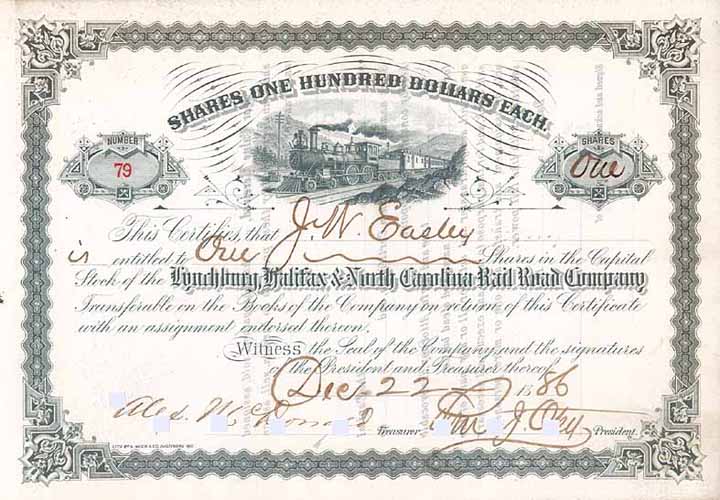 SHARES ONE HUNDRED DOLLARS EACH.
NUMBER
79
SHARES
One
This Certifies, that J. W. Easley
is entitled to One Shares in the Capital
Stock of the Lynchburg, Halifax & North Carolina Rail Road Company
Transferable on the Books of the Company on return of this Certificate
with an assignment endorsed thereon.
Witness the Seal of the Company and the signatures
of the President and Treasurer thereof
Dec 22 1886
Alex. McDonald Treasurer President.